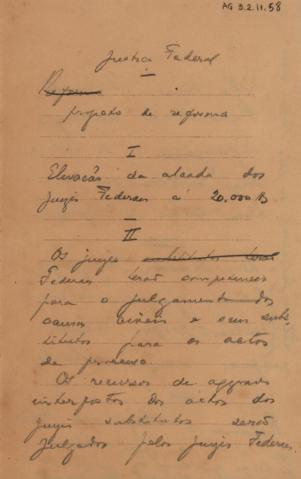 AG 3.2.11.58
Justiça Federal
Reforma
projeto de reforma
I
Elevação da alçada dos
juizes Federaes á 20.000 $
II
Os juizes substitutos terão
Federaes terão competencia
para o julgamento das
causas civeis e seus subs-
titutos para os actos
de processo.
Os recursos de aggravos
interpostos dos actos dos
juizes substitutos serão
julgados pelos juizes Federaes.